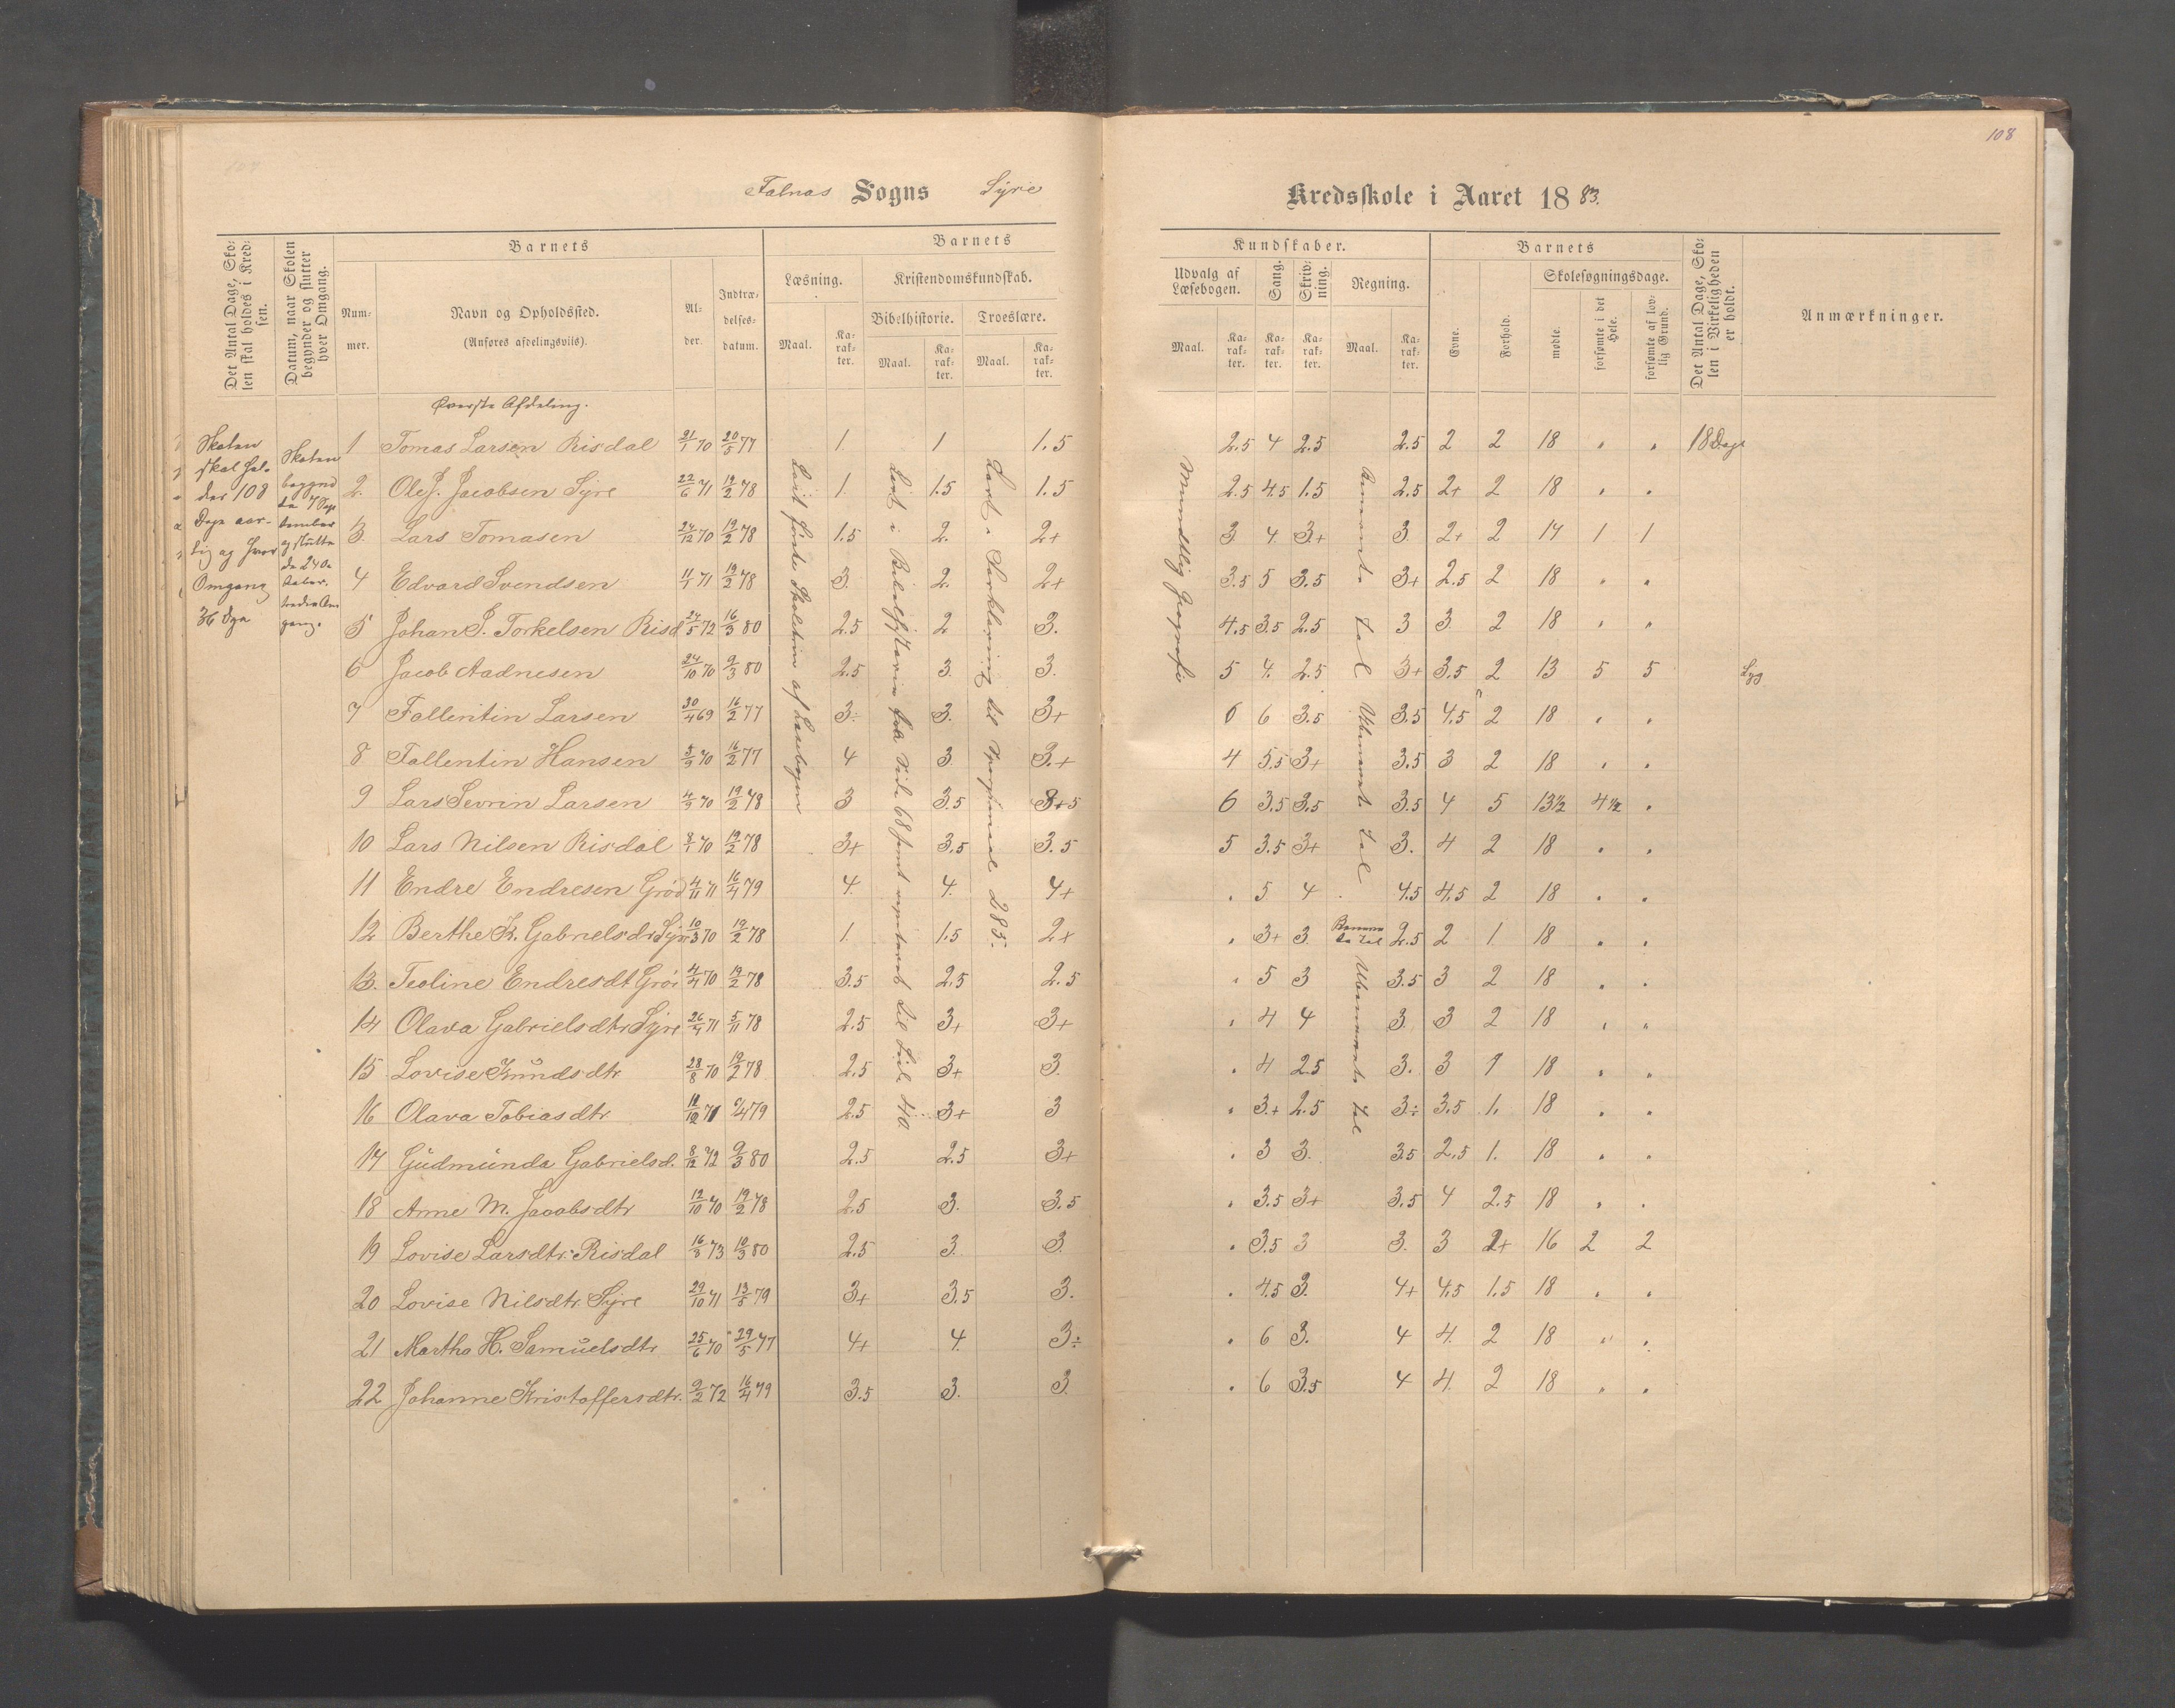 108
Falnas Sogns Syre Kredsskole i Aaret 1883.
Det Antal Dage, Skolen skal holdes i Kredsen.
Datum, naar Skolen begynder og slutter hver Omgang.
Barnets
Nummer.
Navn og Opholdssted.
(Anføres afdelingsviis).
Alder.
Indtrædelsesdatum.
Barnets
Læsning.
Maal.
Karakter.
Kristendomskundskab.
Bibelhistorie.
Maal.
Karakter.
Troeslære.
Maal.
Karakter.
Kundskaber.
Udvalg af Læsebogen.
Maal.
Karakter.
Sang.
Karakter.
Skrivning.
Karakter.
Regning.
Maal.
Karakter.
Barnets
Evne.
Forhold.
Skolesøgningsdage.
mødte.
forsømte i det Hele.
forsømte af lovlig Grund.
Det Antal Dage, Skolen i Virkeligheden er holdt.
Anmærkninger.
Øverste Afdeling.
Skolen
skal hol-
des 108
Dage aar-
lig og hver
Omgang
36 Dge
Skolen
begynd
te 7 Sep
tember
og slutte
de 24 Ok
tober.
tredie Om
gang.
Læst fjerde Skoletrin af Læsebogen
Læst i Bibelhistorie fra Side 68 samt repeteret til Side 40
Læst i Forklaring til Spørgsmaal 285.
Mundtlig Geografi
Benævnte Tal Ubenævnte Tal
Benævn
te Tal
Ubenævnte Tal
1 Tomas Larsen Risdal 21/1 70 20/5 77 1. 1 1.5 2.5 4 2.5 2.5 2 2 18 " " 18 Dage
2. Ole J. Jacobsen Syre 22/6 71 19/2 78 1. 1.5 1.5 2.5 4.5 1.5 2.5 2+ 2 18 " "
3. Lars Tomasen 24/12 70 19/2 78 1.5 2. 2+ 3 4. 3+ 3. 2+ 2 17 1 1
4 Edvard Svendsen 11/1 71 19/2 78 3. 2. 2+ 3.5 5 3.5 3+ 2.5 2 18 " "
5 Johan S. Torkelsen Risd 24/5 72 16/3 80 2.5 2 3. 4.5 3.5 2.5 3 3. 2 18 " "
6 Jacob Aadnesen 24/10 70 9/3 80 2.5 3. 3. 5 4. 2.5 3+ 3.5 2 13 5 5 Syg
7 Fallentin Larsen 30/4 69 16/2 77 3÷ 3. 3+ 6 6 3.5 3.5 4.5 2 18 " "
8 Fallentin Hansen 5/9 70 16/2 77 4 3 3.+ 4 5.5 3+ 3.5 3 2 18 " "
9 Lars Sevrin Larsen 4/9 70 19/2 78 3 3.5 3+5 6 3.5 3.5 3.5 4 5 13½ 4½ "
10 Lars Nilsen Risdal 8/1 70 19/2 78 3+ 3.5 3.5 5 3.5 3+ 3. 4 2 18 " "
11 Endre Endresen Grød 4/11 71 16/4 79 4. 4. 4+ " 5 4 4.5 4.5 2 18 " "
12 Berthe K. Gabrielsdt Syr 10/3 70 19/2 78 1. 1.5 2+ " 3+ 3. 2.5 2 1 18 " "
13. Teoline Endresdt Grø 4/4 70 19/2 78 3.5 2.5 2.5 " 5 3 3.5 3 2 18 " "
14 Olava Gabrielsdtr Syre 26/4 71 5/11 78 2.5 3+ 3+ " 4 4 3. 3 2 18 " "
15 Lovise Knudsdtr 28/8 70 19/2 78 2.5 3+ 3. " 4 2.5 3. 3 1 18 " "
16 Olava Tobiasdtr 2.5 3+ 3 " 3.+ 2.5 3÷ 3.5 1. 18 " "
17 Gudmunda Gabrielsd. 8/12 72 9/3 80 2.5 2.5 3+ " 3 3. 3.5 2.5 1. 18 " "
18 Anne M. Jacobsdtr 12/10 70 19/2 78 2.5 3. 3.5 " 3.5 3+ 3.5 4 2.5 18 " "
19 Lovise Larsdtr. Risdal 16/3 73 10/3 80 2.5 3. 3. " 3.5 3 3. 3 2+ 16 2 2
20 Lovise Nilsdtr. Syre 29/10 71 13/5 79 3+ 3.5 3. " 4.5 3. 4+ 4.5 1.5 18 " "
21 Martha H. Samuelsdtr 25/6 70 29/5 77 4+ 4. 3÷ " 6 3. 4 4. 2 18 " "
22 Johanne Kristoffersdtr. 9/2 72 16/4 79 3.5 3. 3. " 6 3.5 4 4. 2 18 " "